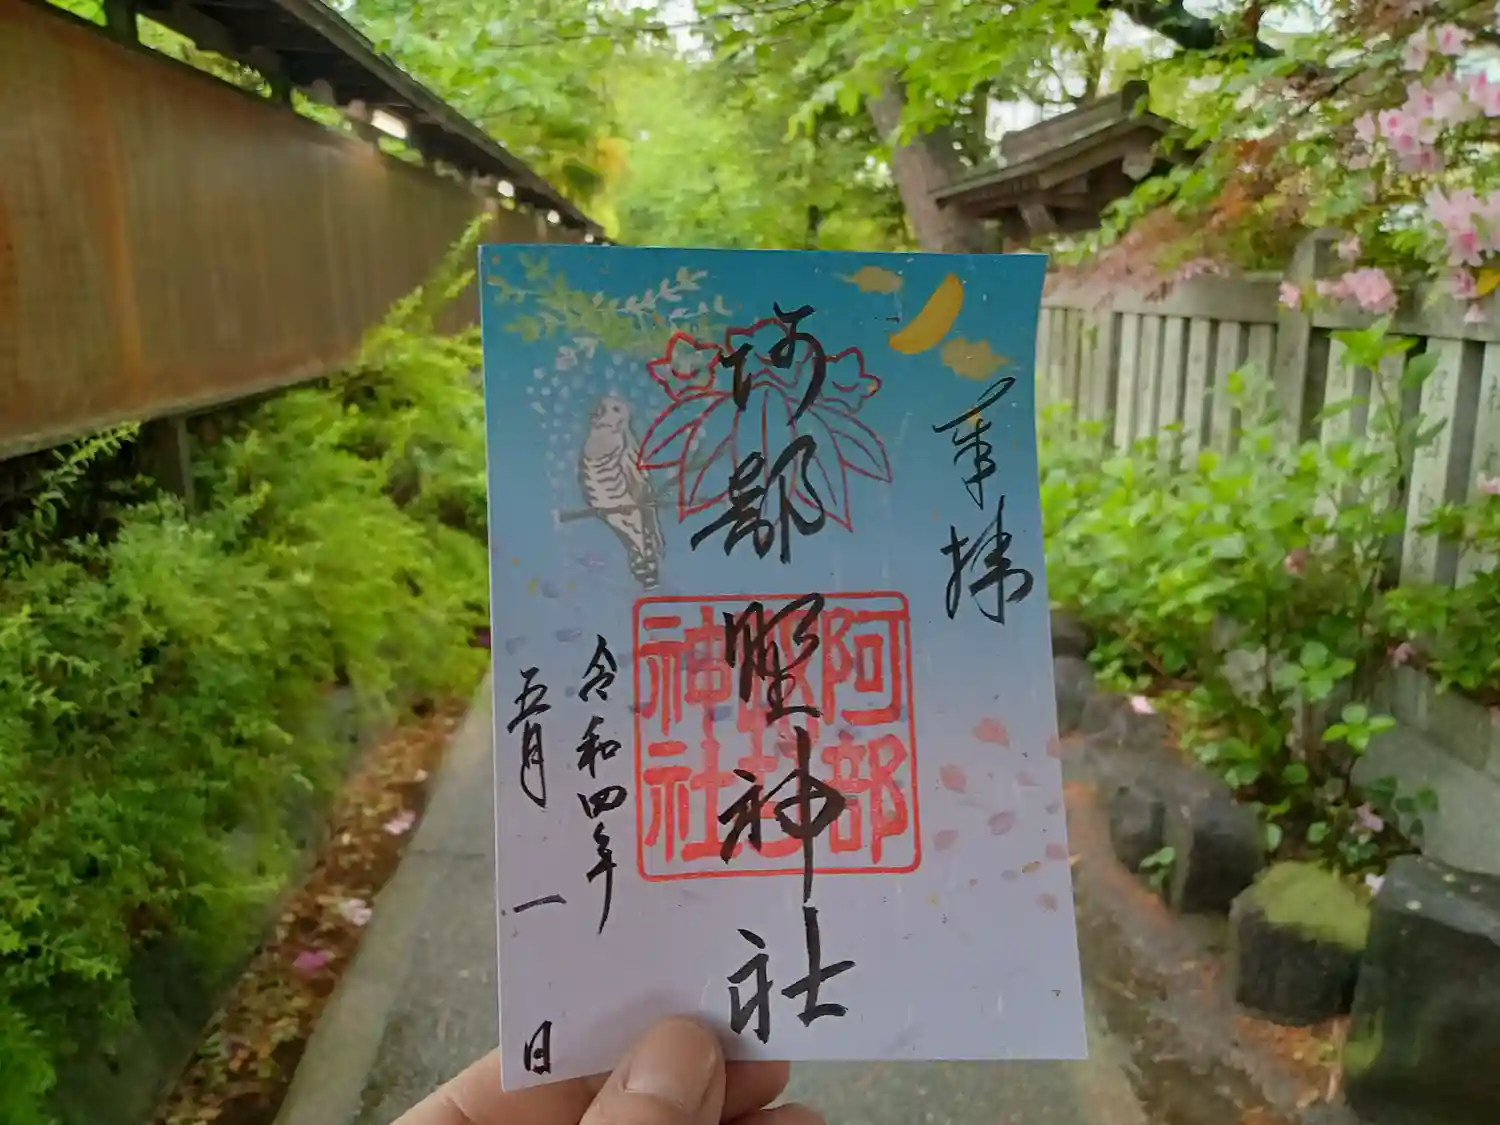 奉拝
阿部野神社
令和四年
五月一日
阿部
神社